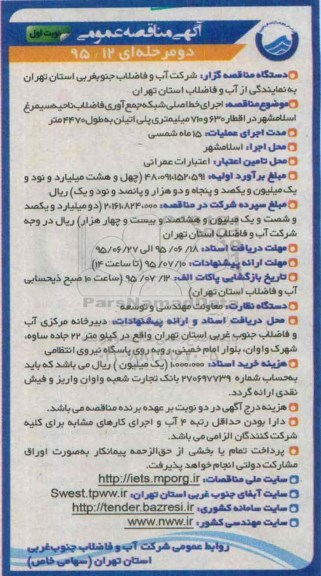 آگهی مناقصه عمومی
نوبت اول
دو مرحله‌ای ۹۵/۱۲
دستگاه مناقصه گزار: شرکت آب و فاضلاب جنوبغربی استان تهران
به نمایندگی از آب و فاضلاب استان تهران
موضوع مناقصه: اجرای خط اصلی شبکه جمع آوری فاضلاب ناحیه سیمرغ
اسلامشهر در اقطار ۶۳۰ و ۷۱۰ میلیمتری پلی اتیلن به طول ۴۴۷۰ متر
مدت اجرای عملیات: ۱۵ ماه شمسی
محل اجرا: اسلامشهر
محل تامین اعتبار: اعتبارات عمرانی
مبلغ برآورد اولیه: ۴۸،۰۹۱،۱۵۲،۵۹۱ (چهل و هشت میلیارد و نود و
یک میلیون و یکصد و پنجاه و دو هزار و پانصد و نود و یک) ریال
مبلغ سپرده شرکت در مناقصه: ۲،۱۶۱،۸۲۴،۰۰۰ (دو میلیارد و یکصد
و شصت و یک میلیون و هشتصد و بیست و چهار هزار) ریال در وجه
شرکت آب و فاضلاب استان تهران
مهلت دریافت اسناد: ۹۵/۰۶/۱۸ الی ۹۵/۰۶/۲۷
مهلت ارائه پیشنهادات: ۹۵/۰۷/۱۰ (تا ساعت ۱۴)
تاریخ بازگشایی پاکات الف: ۹۵/۰۷/۱۲ (ساعت ۱۰ صبح ذیحسابی
آب و فاضلاب استان تهران)
دستگاه نظارت: معاونت مهندسی و توسعه
محل دریافت اسناد و ارائه پیشنهادات: دبیرخانه مرکزی آب
و فاضلاب جنوب غربی استان تهران واقع در کیلو متر ۲۲ جاده ساوه،
شهرک واوان، بلوار امام خمینی، روبه روی پاسگاه نیروی انتظامی
هزینه خرید اسناد: ۱،۰۰۰،۰۰۰ (یک میلیون) ریال می باشد که باید
به حساب شماره ۲۷۰۶۹۷۷۳۹ بانک تجارت شعبه واوان واریز و فیش
نقدی ارائه گردد.
هزینه درج آگهی در دو نوبت بر عهده برنده مناقصه می باشد.
دارا بودن حداقل رتبه ۴ آب و اجرای کارهای مشابه برای کلیه
شرکت کنندگان الزامی می باشد.
پرداخت تمام یا بخشی از حق الزحمه پیمانکار به صورت اوراق
مشارکت دولتی انجام خواهد پذیرفت.
سایت ملی مناقصات: http://iets.mporg.ir
سایت آبفای جنوب غربی استان تهران: Swest.tpww.ir
سایت سامانه کشوری: http://tender.bazresi.ir
سایت مهندسی کشور: www.nww.ir
روابط عمومی شرکت آب و فاضلاب جنوب غربی
استان تهران (سهامی خاص)